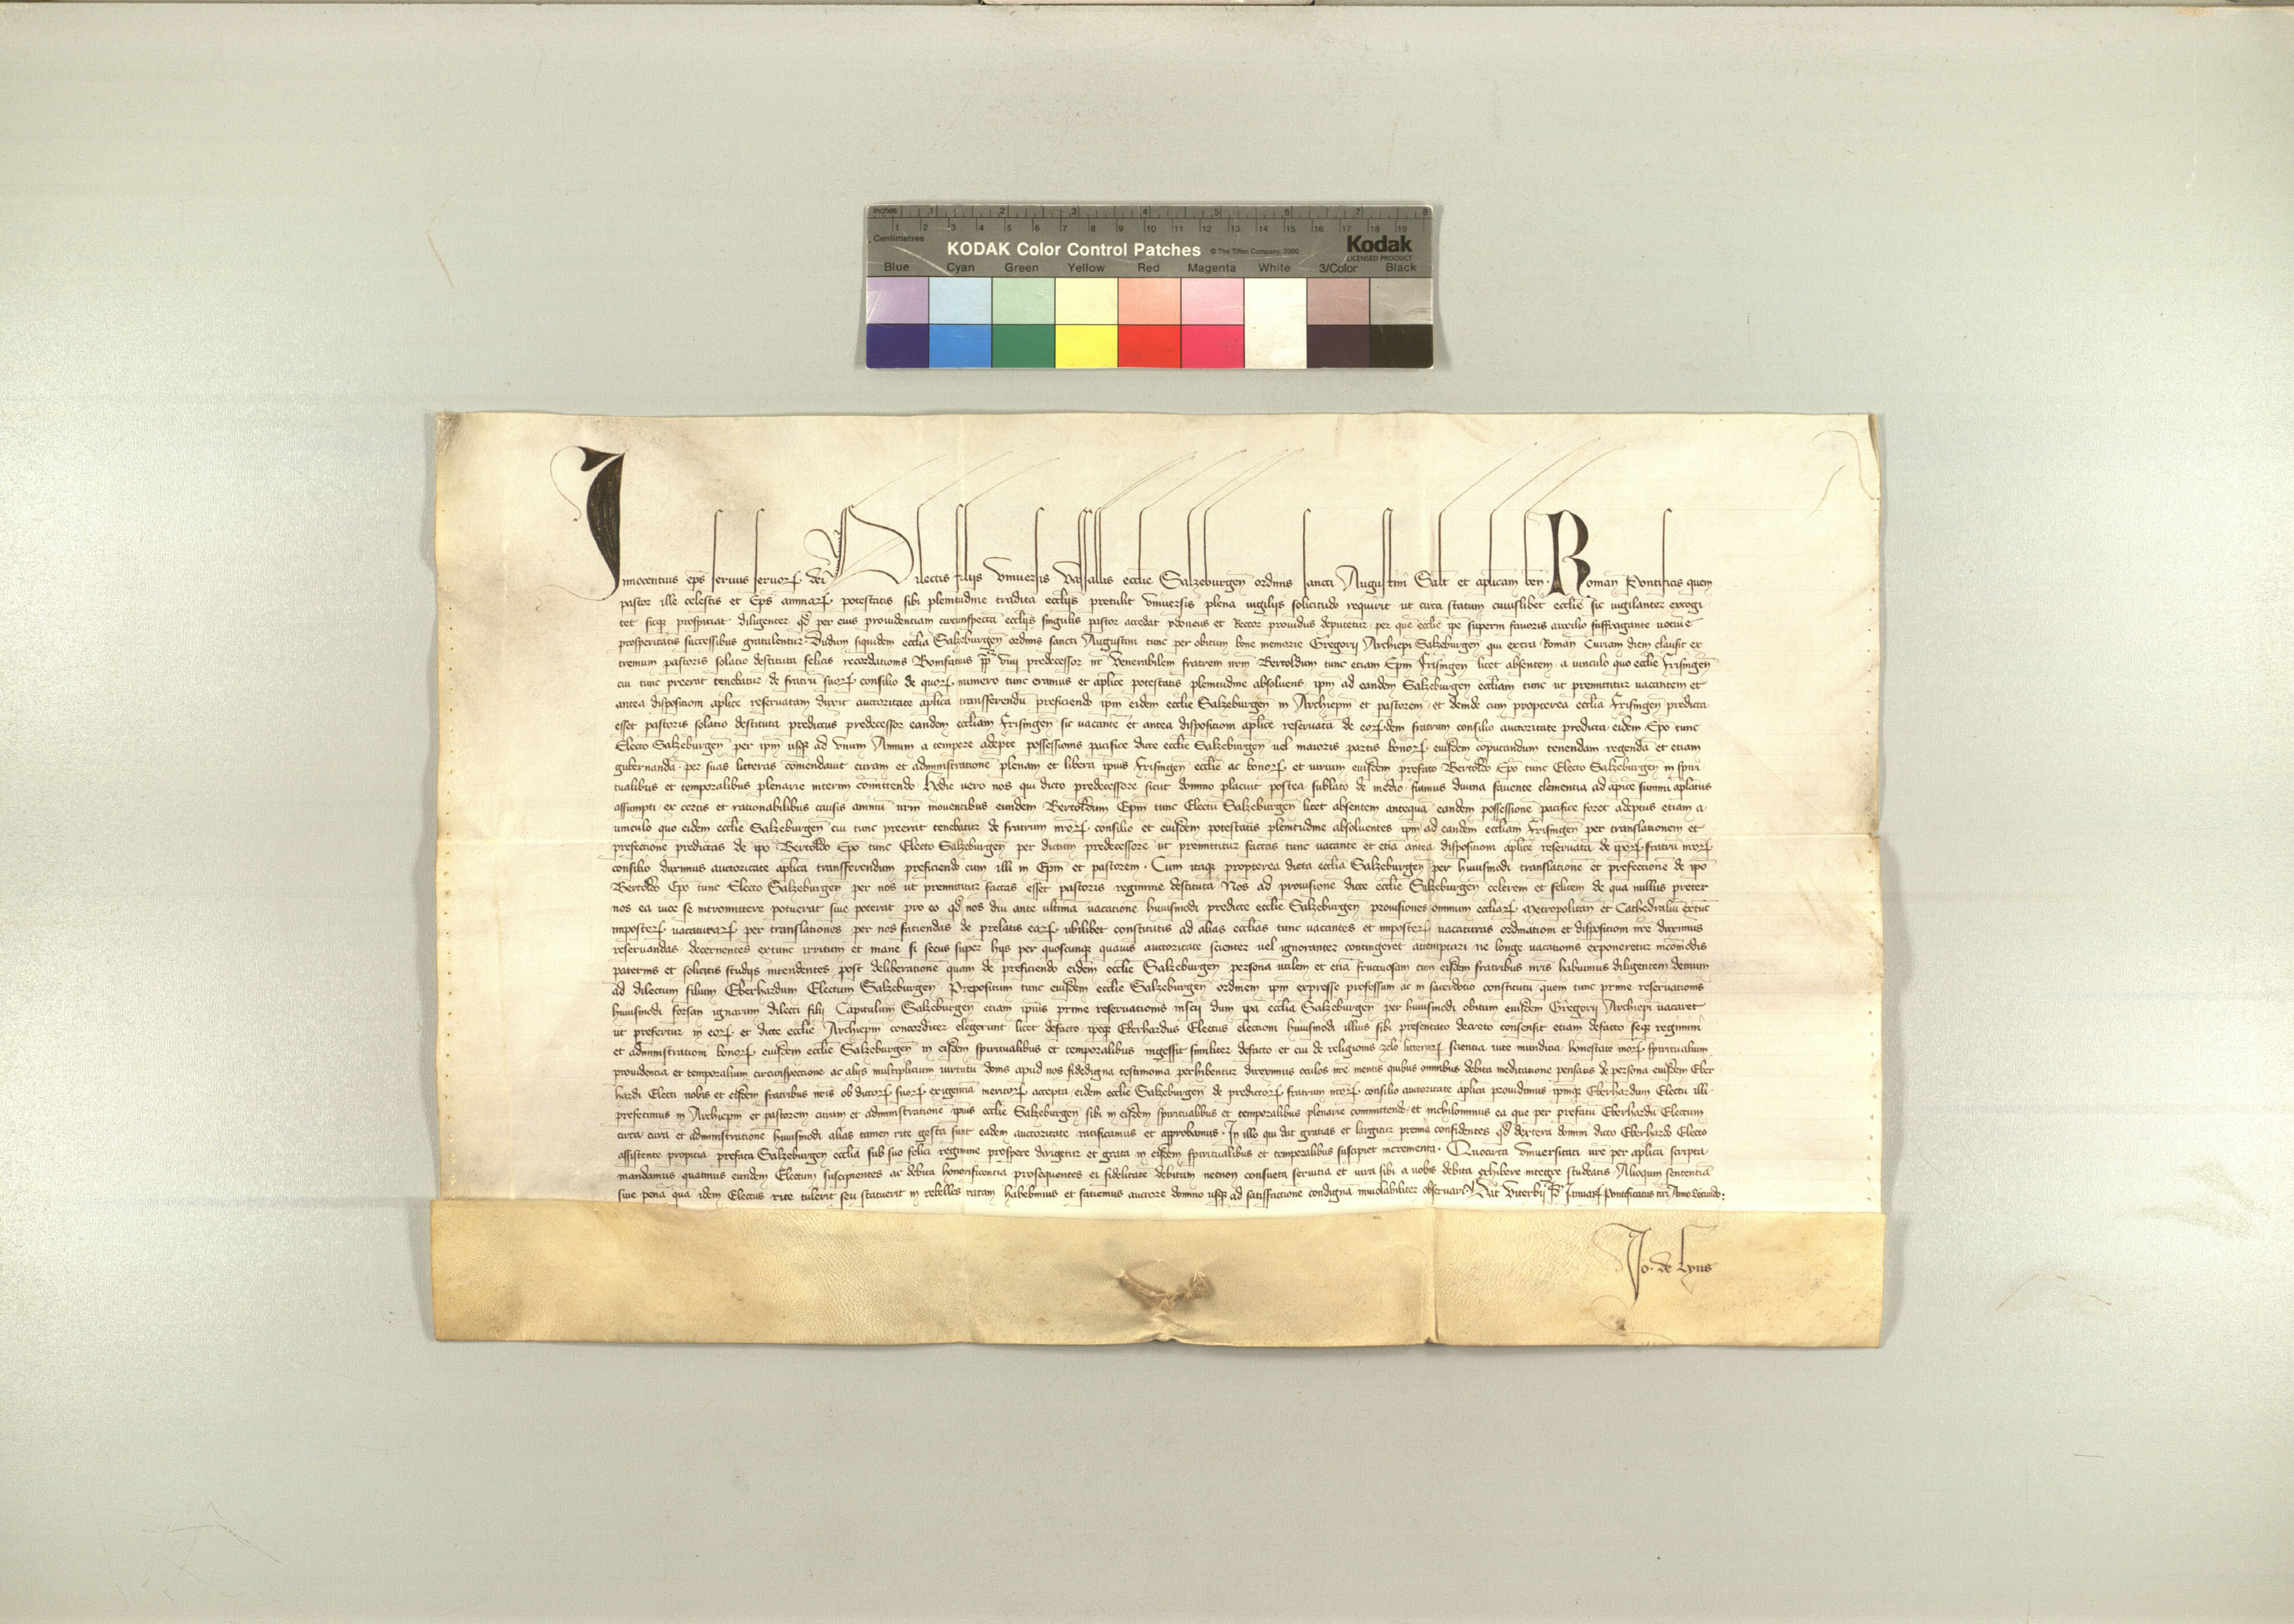 Inches 1 2 3 4 5 6 7 8
Centimetres 1 2 3 4 5 6 7 8 9 10 11 12 13 14 15 16 17 18 19
KODAK Color Control Patches © The Tiffen Company, 2000 Kodak
LICENSED PRODUCT
Blue Cyan Green Yellow Red Magenta White 3/Color Black
Innocentius ep̄s seruus seruoꝝ dei Dilectis filijs vniuersis vasallis eccl̄ie Salzeburgen̄ ordinis sancti Augustini Salt̄ et apl̄icam ben̄. Roman̄ Pontificis quem
pastor ille celestis et Ep̄s animaꝝ potestatis sibi plenitudine tradita eccl̄ijs pretulit vniuersis plena vigilijs solicitudo requirit ut circa statum cuiuslibet eccl̄ie sic vigilanter excogi
tet sicqꝫ prospiciat diligenter qd̄ per eius prouidentiam circunspectā eccl̄ijs singulis pastor accedat ydoneus et Rector prouidus deputetur per quē eccl̄ie ip̄e superni fauoris auxilio suffragante votiue
prosperitatis successibus gratulentur. Dudum siquidem eccl̄ia Salzeburgen̄ ordinis sancti Augustini tunc per obitum bone memorie Gregorij Archiep̄i Salzeburgen̄ qui extra Roman̄ Curiam diem clausit ex
tremum pastoris solatio destituta felicis recordationis Bonifatius pp̄ viiij predecessor nr̄ Venerabilem fratrem nr̄m Bertoldum tunc etiam Ep̄m Frisingen̄ licet absentem a vinculo quo eccl̄ie Frisingen̄
cui tunc preerat tenebatur de fratrū suoꝝ consilio de quoꝝ numero tunc eramus et apl̄ice potestatis plenitudine absoluens ip̄m ad eandem Salzeburgen̄ eccl̄iam tunc ut premittitur vacantem et
antea dispositioni apl̄ice reseruatam duxit auctoritate apl̄ica transferendū preficiendo ip̄m eidem eccl̄ie Salzeburgen̄ in Archiep̄m et pastorem et deinde cum propterea eccl̄ia Frisingen̄ predicta
esset pastoris solatio destituta predictus predecessor eandem eccl̄iam Frisingen̄ sic vacantē et antea dispositioni apl̄ice reseruatā de eoꝝdem fratrum consilio auctoritate predicta eidem Ep̄o tunc
Electo Salzeburgen̄ per ip̄m usqꝫ ad vnum Annum a tempore adepte possessionis pacifice dicte eccl̄ie Salzeburgen̄ uel maioris partis bonoꝝ eiusdem computandum tenendam regendā et etiam
gubernandā per suas litteras com̄endauit curam et administrationē plenam et liberā ip̄ius Frisingen̄ eccl̄ie ac bonoꝝ et iurium eiusdem prefato Bertoldo Ep̄o tunc Electo Salzeburgen̄ in spiri
tualibus et temporalibus plenarie interim com̄ittendo. Hodie uero nos qui dicto predecessore sicut domino placuit postea sublato de medio fuimus diuina fauente clementia ad apicē sum̄i apl̄atus
assumpti ex certis et rationabilibus causis animū nr̄m mouentibus eundem Bertoldum Ep̄m tunc Electū Salzeburgen̄ licet absentem antequā eandem possessionē pacifice foret adeptus etiam a
vinculo quo eidem eccl̄ie Salzeburgen̄ cui tunc preerat tenebatur de fratrum nr̄oꝝ consilio et eiusdem potestatis plenitudine absoluentes ip̄m ad eandem eccl̄iam Frisingen̄ per translationem et
prefectionē predictas de ip̄o Bertoldo Ep̄o tunc Electo Salzeburgen̄ per dictum predecessorē ut premittitur factas tunc vacantē et etiā antea dispositioni apl̄ice reseruatā de ip̄oꝝ fratrū nr̄oꝝ
consilio duximus auctoritate apl̄ica transferendum preficiendo eum illi in Ep̄m et pastorem. Cum itaqꝫ propterea dicta eccl̄ia Salzeburgen̄ per huiusmodi translationē et prefectionē de ip̄o
Bertoldo Ep̄o tunc Electo Salzeburgen̄ per nos ut premittitur factas esset pastoris regimine destituta Nos ad prouisionē dicte eccl̄ie Salzeburgen̄ celerem et felicem de qua nullus preter
nos ea uice se intromittere potuerat siue poterat pro eo qd̄ nos diu ante ultimā vacationē huiusmodi predicte eccl̄ie Salzeburgen̄ prouisiones omnium eccl̄iaꝝ Metropolitan̄ et Cathedraliū extūc
imposteꝝ vacaturaꝝ per translationes per nos faciendas de prelatis eaꝝ ubilibet constitutis ad alias eccl̄ias tunc vacantes et imposteꝝ vacaturas ordinationi et dispositioni nr̄e duximus
reseruandas decernentes extunc irritum et inane si secus super hijs per quoscunqꝫ quauis auctoritate scienter uel ignoranter contingeret attemptari ne longe vacationis exponeretur incom̄odis
paternis et solicitis studijs intendentes post deliberationē quam de preficiendo eidem eccl̄ie Salzeburgen̄ personā utilem et etiā fructuosam cum eisdem fratribus nr̄is habuimus diligentem demum
ad dilectum filium Eberhardum Electum Salzeburgen̄ Prepositum tunc eiusdem eccl̄ie Salzeburgen̄ ordinem ip̄m expresse professum ac in sacerdotio constitutū quem tunc prime reseruationis
huiusmodi forsan ignarum dilecti filij Capitulum Salzeburgen̄ etiam ip̄ius prime reseruationis inscij dum ip̄a eccl̄ia Salzeburgen̄ per huiusmodi obitum eiusdem Gregorij Archiep̄i vacaret
ut prefertur in eoꝝ et dicte eccl̄ie Archiep̄m concorditer elegerunt licet defacto ip̄eqꝫ Eberhardus Electus electioni huiusmodi illius sibi presentato decreto consensit etiam defacto seqꝫ regimini
et administrationi bonoꝝ eiusdem eccl̄ie Salzeburgen̄ in eisdem spiritualibus et temporalibus ingessit similiter defacto et cui de religionis zelo litteraꝝ scientia uite munditia honestate moꝝ spiritualium
prouidentia et temporalium circunspectione ac alijs multiplicium uirtutū donis apud nos fidedigna testimonia perhibentur direximus oculos nr̄e mentis quibus omnibus debita meditatione pensatis de persona eiusdem Eber
hardi Electi nobis et eisdem fratribus nr̄is ob dictoꝝ suoꝝ exigentiā meritoꝝ accepta eidem eccl̄ie Salzeburgen̄ de predictoꝝ fratrum nr̄oꝝ consilio auctoritate apl̄ica prouidimus ip̄mqꝫ Eberhardum Electū illi
prefecimus in Archiep̄m et pastorem curam et administrationē ip̄ius eccl̄ie Salzeburgen̄ sibi in eisdem spiritualibus et temporalibus plenarie committendo et nichilominus ea que per prefatū Eberhardū Electum
circa curā et administrationē huiusmodi alias tamen rite gesta sunt eadem auctoritate ratificamus et approbamus. In illo qui dat gratias et largitur premia confidentes qd̄ dextera domini dicto Eberhardo Electo
assistente propitia prefata Salzeburgen̄ eccl̄ia sub suo felici regimine prospere dirigetur et grata in eisdem spiritualibus et temporalibus suscipiet incrementa. Quocirca vniuersitati ur̄e per apl̄ica scripta
mandamus quatinus eundem Electum suscipientes ac debita honorificentia prosequentes ei fidelitatē debitam necnon consueta seruitia et iura sibi a uobis debita exhibere integre studeatis Alioquin sententiā
siue penā quā idem Electus rite tulerit seu statuerit in rebelles ratam habebimus et faciemus auctore domino usqꝫ ad satisfactionē condignā inuiolabiliter obseruari. Dat̄ Viterbij Januaꝝ Pontificatus nr̄i Anno Secundo.
Jo. de Lyns